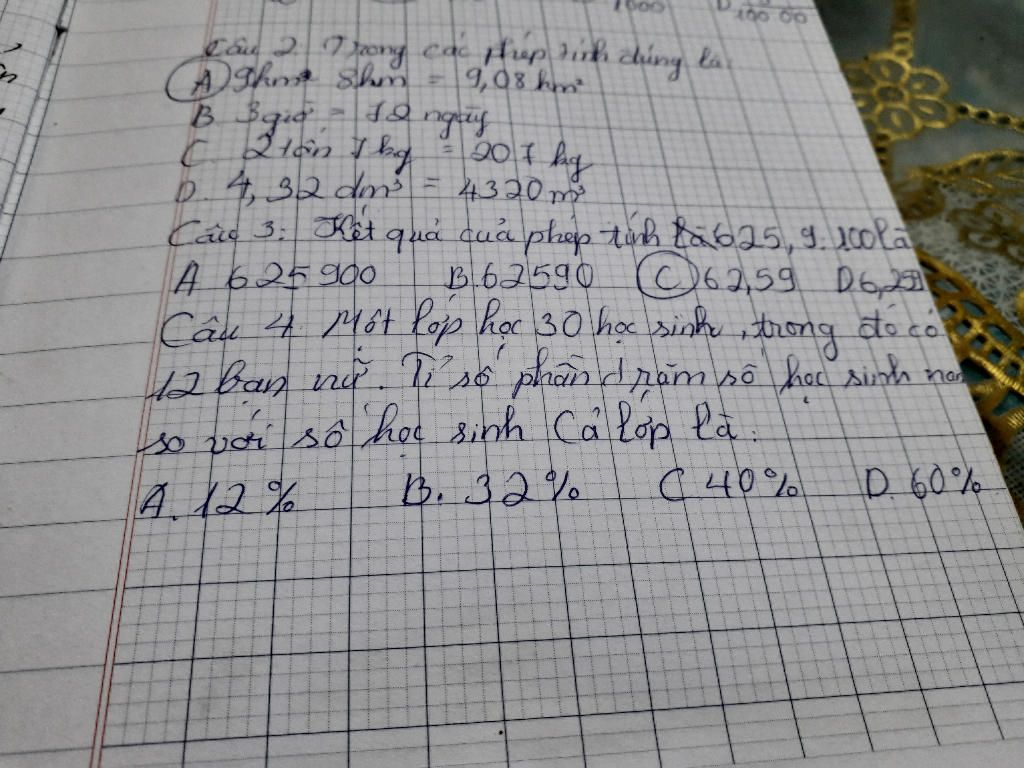 1000 D. 10000
Câu 2 Trong các phép tính đúng là:
A 9hm² 8hm = 9,08 hm²
B. 3 giờ = 12 ngày
C. 2 tấn 7 kg = 207 kg
D. 4,32 dm³ = 4320 m³
Câu 3: Kết quả của phép tính là 625,9:100 là
A 625900 B. 62590 C 62,59 D 6,259
Câu 4. Một lớp học 30 học sinh, trong đó có
12 bạn nữ. Tỉ số phần trăm số học sinh nam
so với số học sinh Cả lớp là:
A. 12% B. 32% C 40% D. 60%